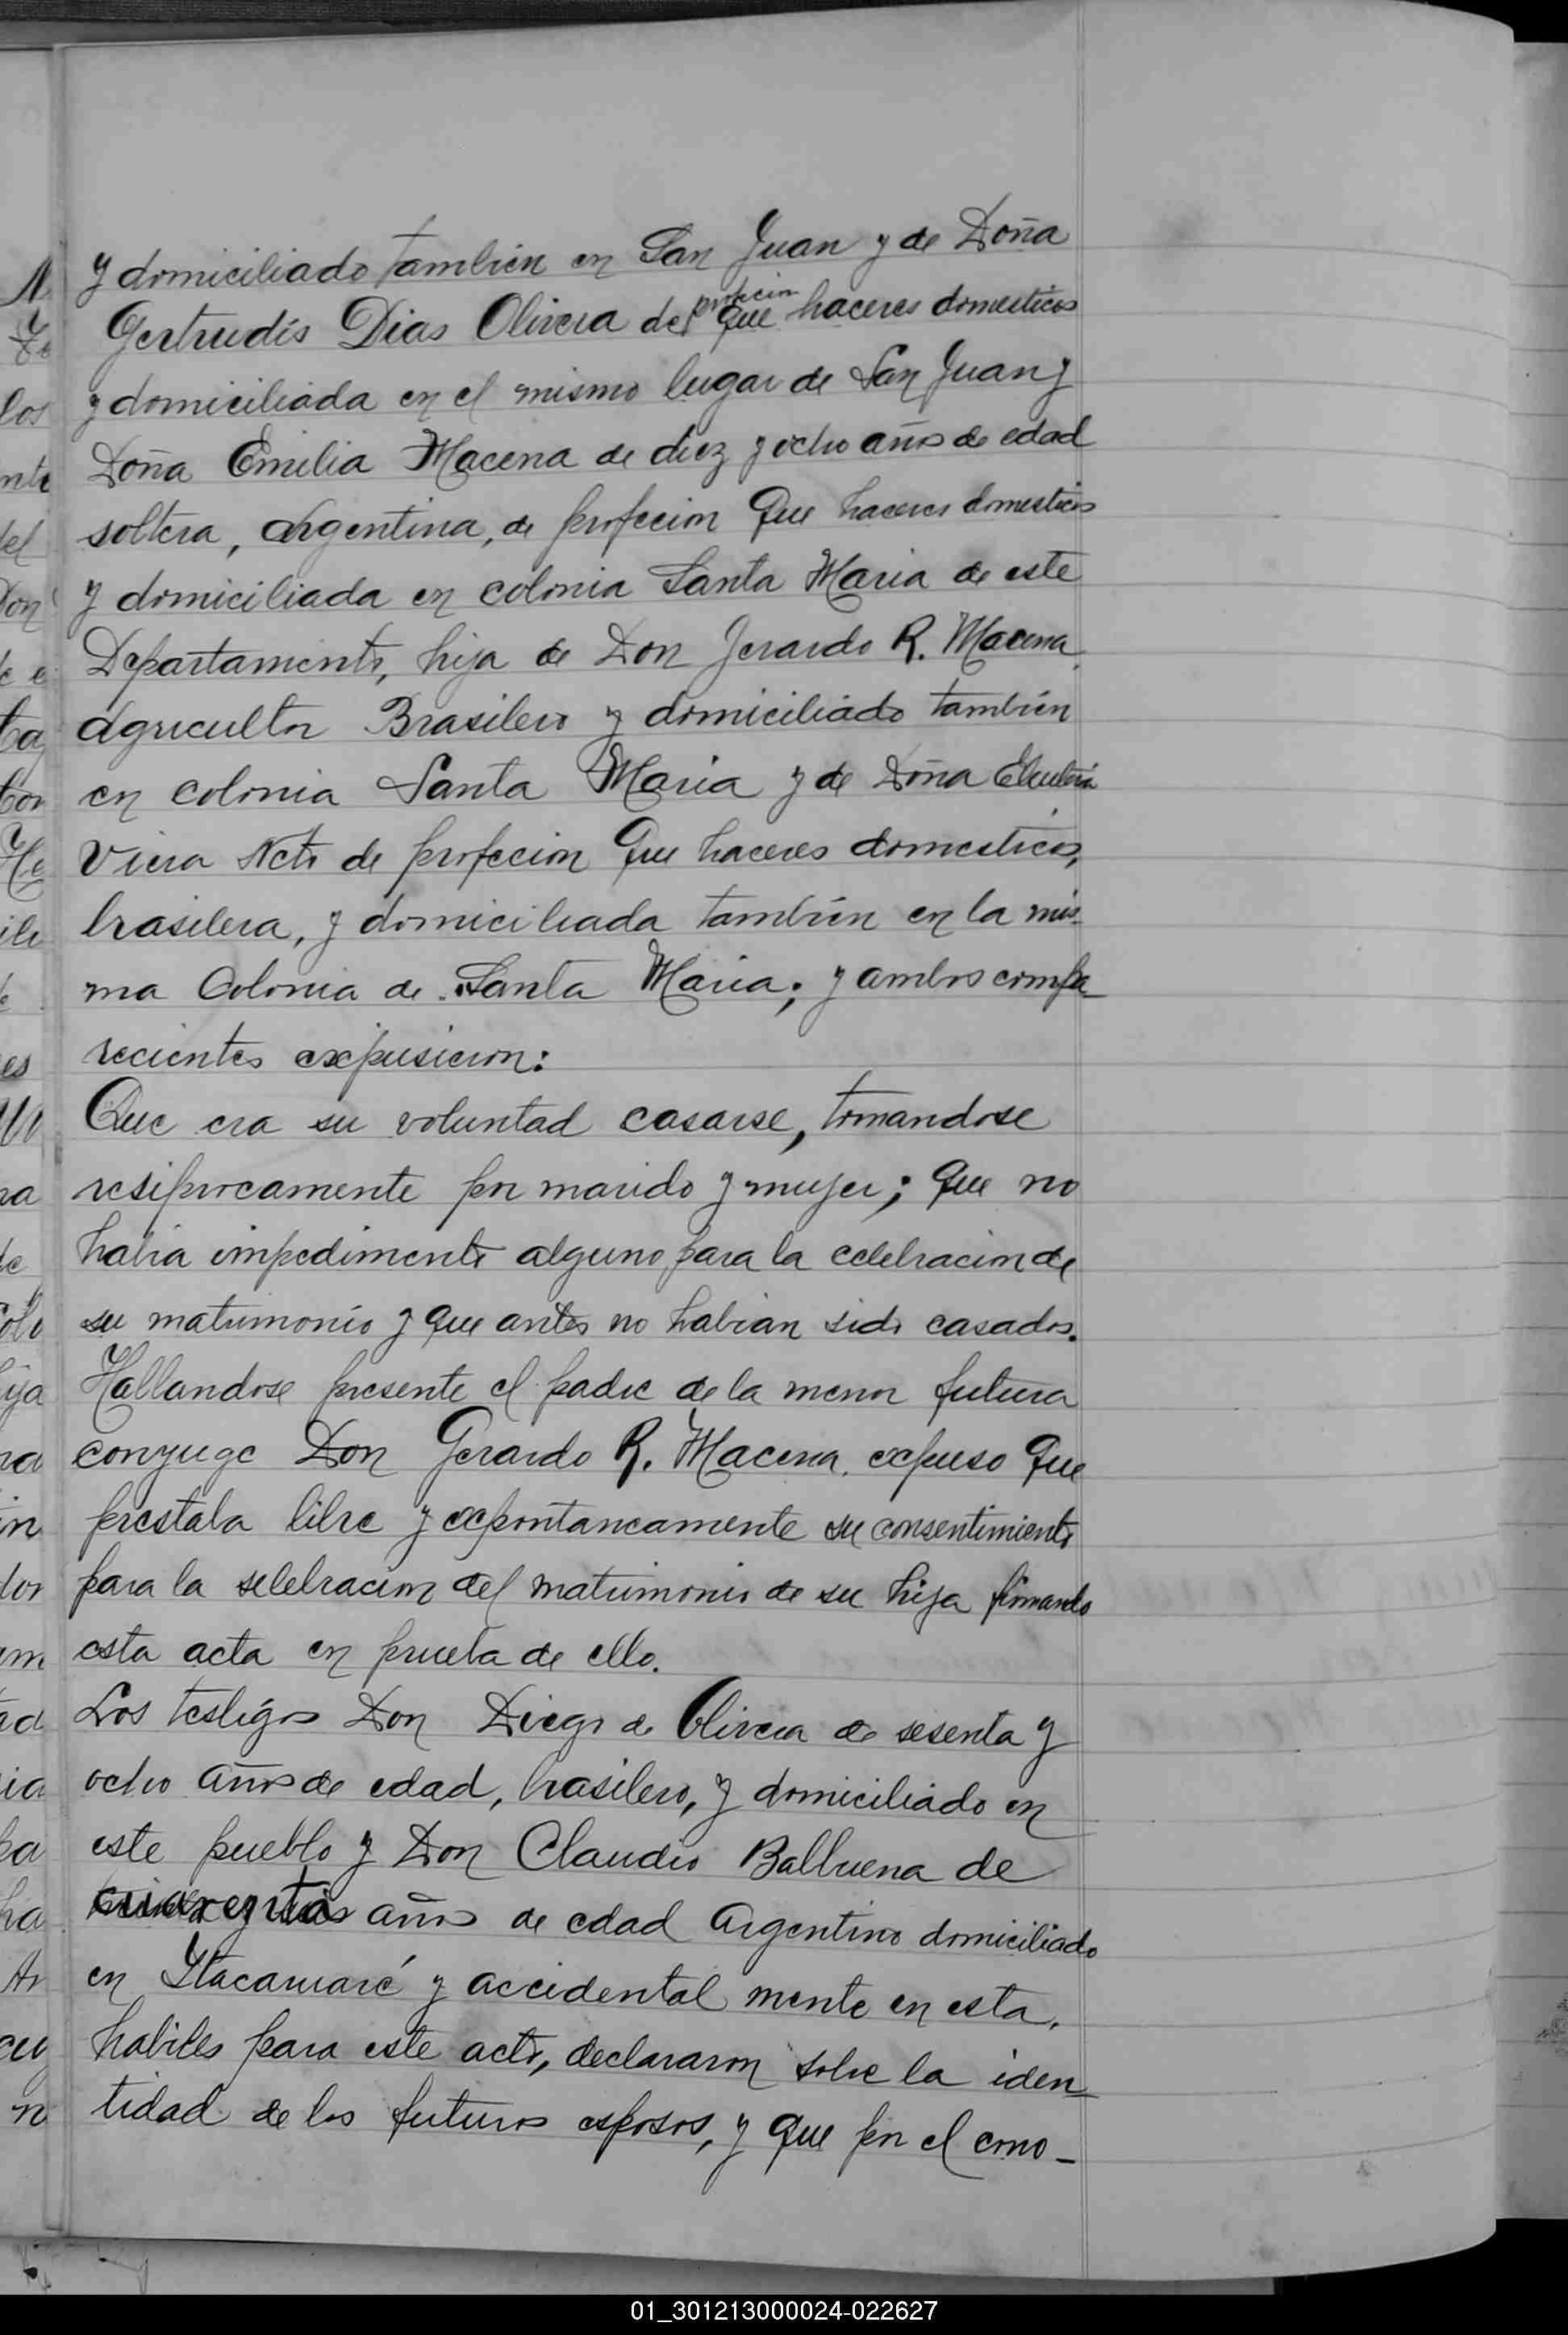 y domiciliado tambien en San Juan y de Doña
Gertrudis Dias Olivera de profecion que haceres domesticos
y domiciliada en el mismo lugar de San Juan y
Doña Emilia Macena de diez y ocho años de edad
soltera, Argentina, de profecion Que haceres domesticos
y domiciliada en colonia Santa Maria de este
Departamento, hija de Don Jerardo R. Macena
agricultor Brasilero y domiciliado tambien
en colonia Santa Maria y de Doña Eleuteria
Viera Neto de profecion Que haceres domesticos,
brasilera, y domiciliada tambien en la mis-
ma Colonia de Santa Maria; y ambos compa-
recientes expusieron:
Que era su voluntad casarse, tomandose
resiprocamente por marido y mujer; Que no
habia impedimento alguno para la celebracion de
su matrimonio y que antes no habian sido casados.
Hallandose presente el padre de la menor futura
conyuge Don Gerardo R. Macena, expuso Que
prestaba libre y expontaneamente su consentimiento
para la selebracion del matrimonio de su hija firmando
esta acta en prueba de ello.
Los testigos Don Diego de Olivera de sesenta y
ocho años de edad, brasilero, y domiciliado en
este pueblo y Don Claudio Balbuena de
años de edad Argentino domiciliado
en Itacaruaré y accidental mente en esta,
habiles para este acto, declararon sobre la iden-
tidad de los futuros esposos, y que por el cono-
01_301213000024-022627